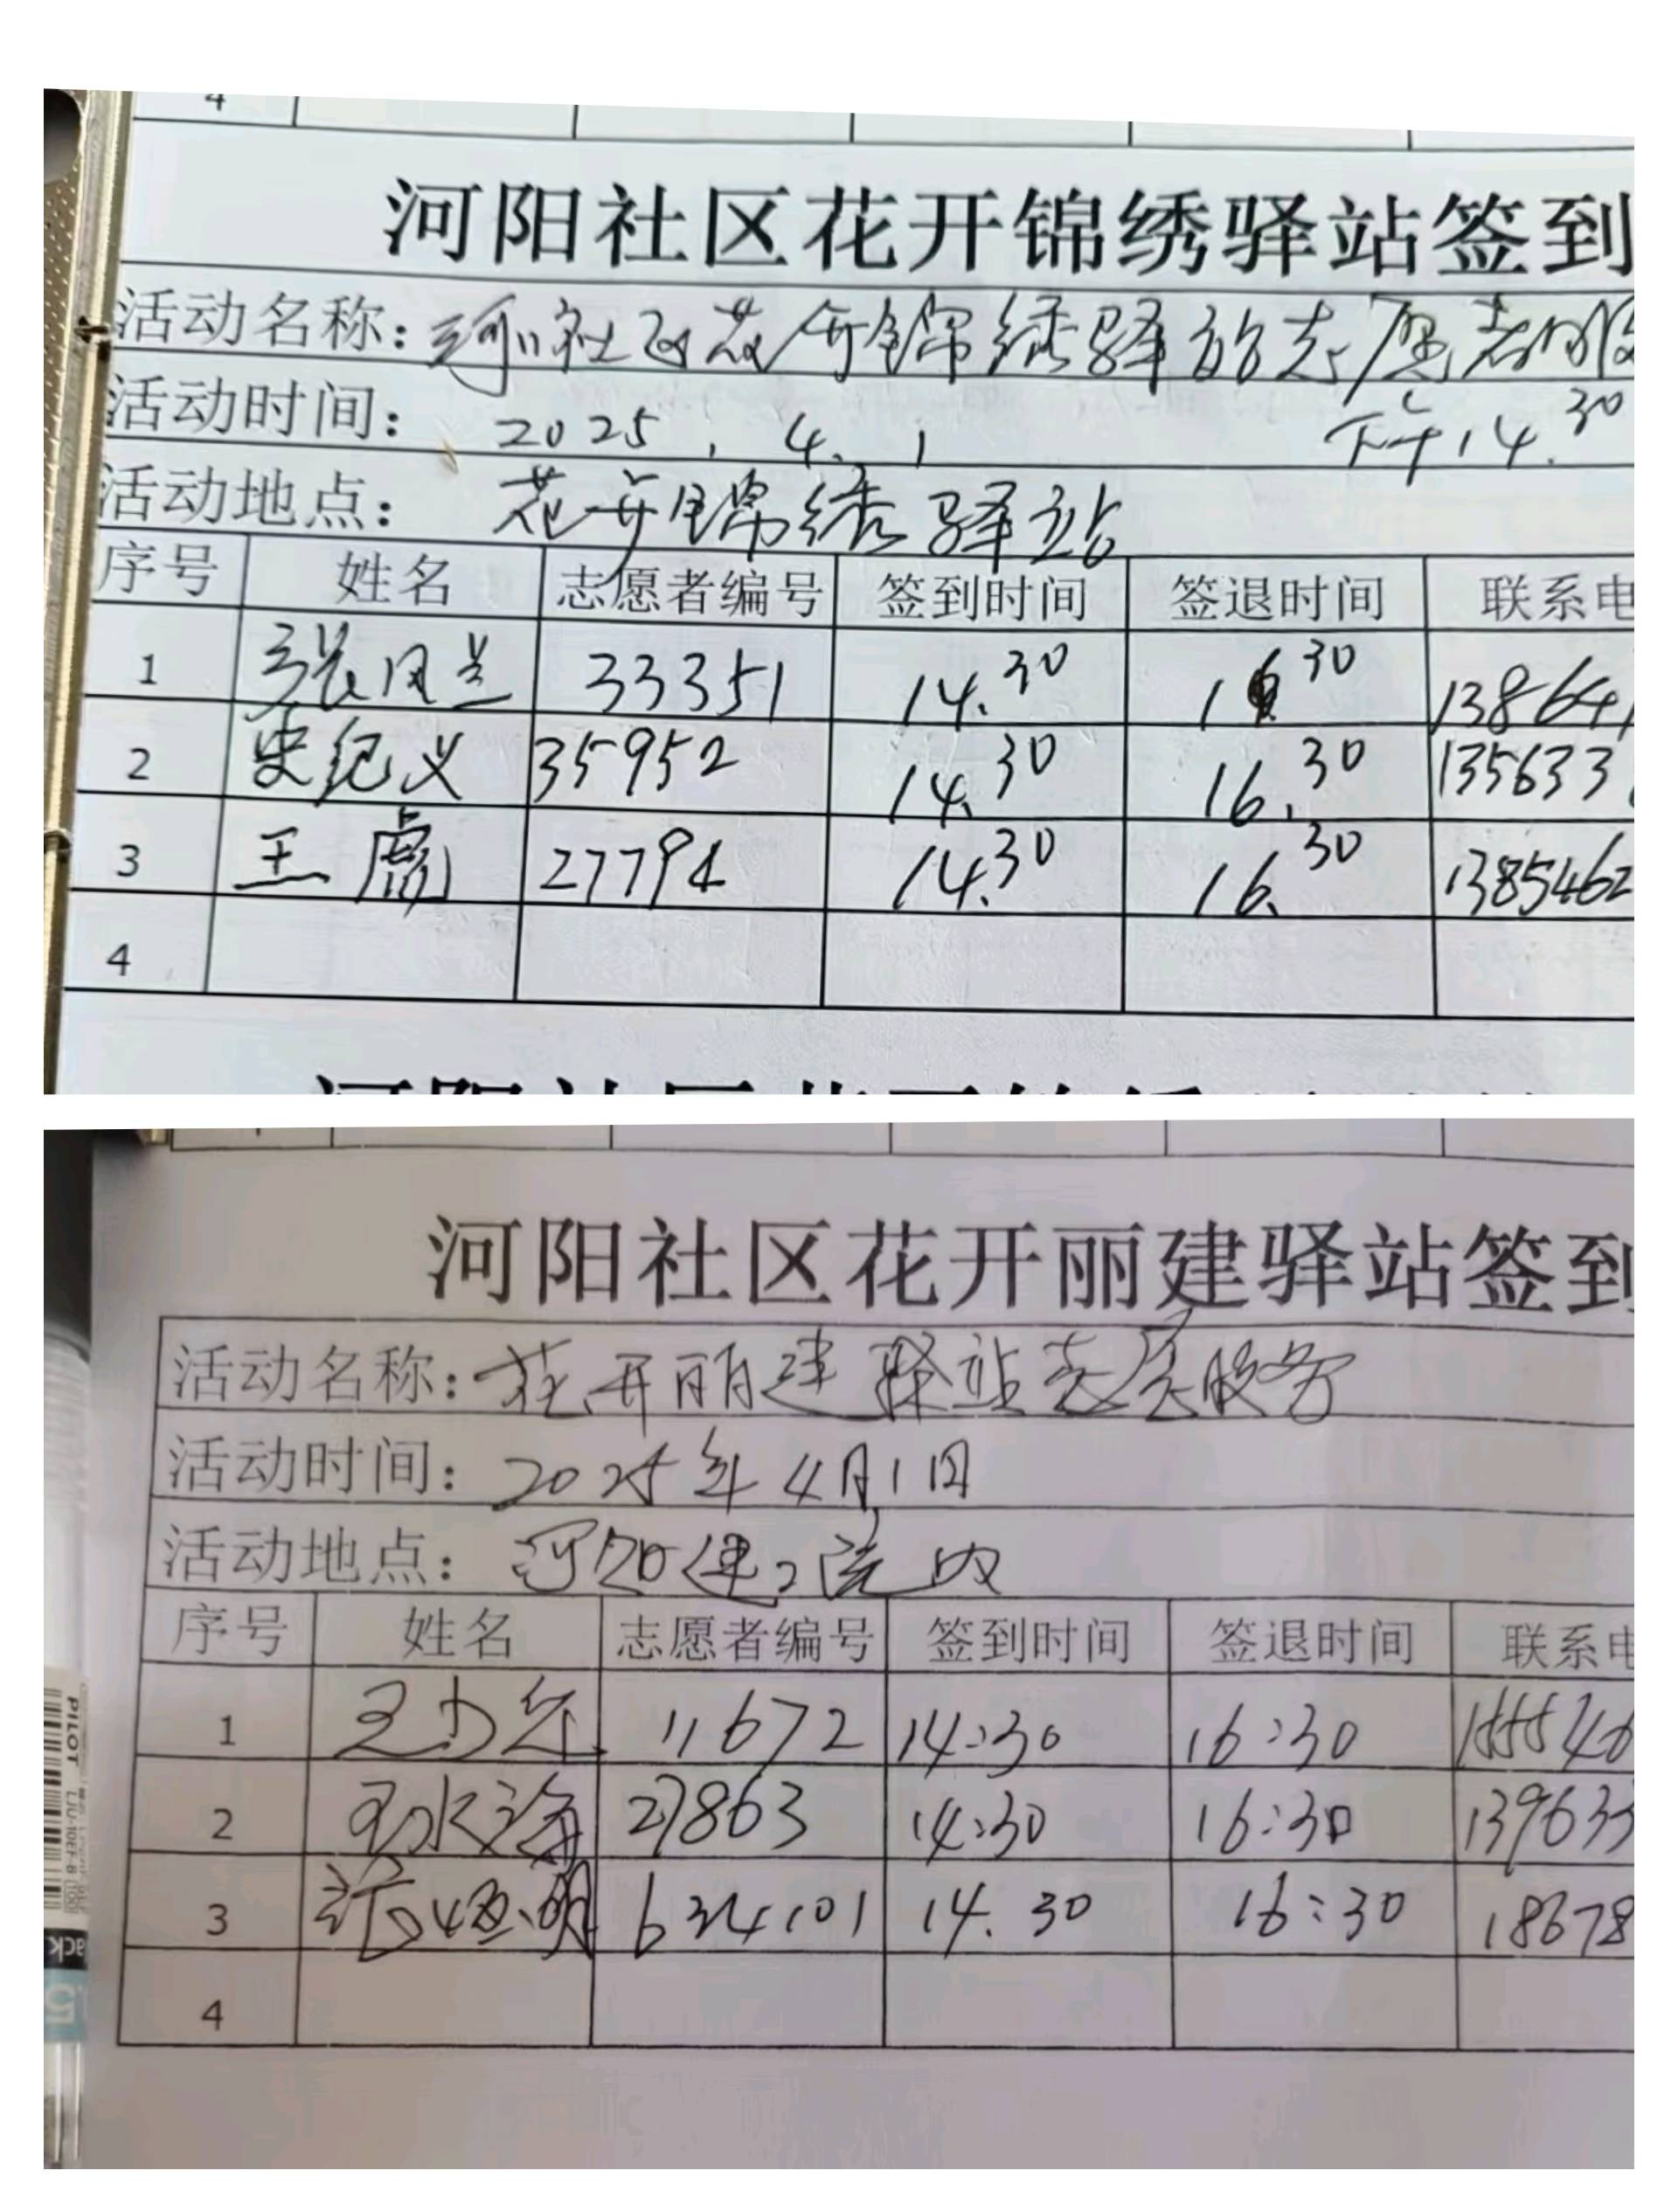 4
河阳社区花开锦绣驿站签到
活动名称：河社区花开锦绣驿站志愿者服
活动时间：2025.4.1 下午14.30
活动地点：花开锦绣驿站
序号 姓名 志愿者编号 签到时间 签退时间 联系电
1 张风兰 33351 14.30 16 30 138641
2 史纪义 35952 14.30 16.30 135633
3 王虎 27794 14.30 16.30 1385462
4
河阳社区花开锦绣
河阳社区花开丽建驿站签到
活动名称：花开丽建驿站志愿服务
活动时间：2025年4月1日
活动地点：河阳建 院内
序号 姓名 志愿者编号 签到时间 签退时间 联系电
1 11672 14:30 16:30 155546
2 王永海 27863 14:30 16:30 139633
3 624101 14.30 16:30 18678
4
PILOT